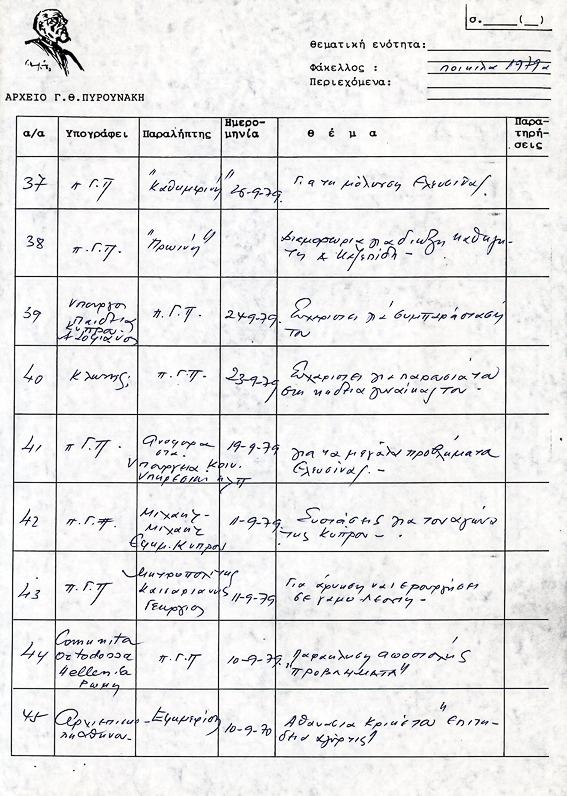 σ. ____ (__)
Θεματική ενότητα:
Φάκελλος : ποικιλα 1979α
Περιεχόμενα:
ΑΡΧΕΙΟ Γ.Θ.ΠΥΡΟΥΝΑΚΗ
α/α Υπογράφει Παραλήπτης Ημερομηνία θέμα Παρατηρήσεις
37 π Γ.Π "Καθημερινή" 26-9-79 Για τη μόλυνση Ελευσίνας.
38 π.Γ.Π. "Πρωινή" Διαμαρτυρια για διωξη καθηγη-
τη Δ
39 Υπουργος
Παιδείας
Κύπρου
π.Γ.Π. 24-9-79. Ευχαριστει για συμπαράσταση
του
40 π.Γ.Π. 23-9-79 Ευχαριστει για παρουσια του
στη κηδεια γυναίκας του.
41 π Γ.Π. Αναφορα
στα
Υπουργεια Κοιν.
Υπηρεσιων κλπ
19-9-79 για τα μεγάλα προβλήματα
Ελευσίνας. -
42 π.Γ.Π. Μιχαήλ-
Μιχαήλ
Εφημ. Κυπρου
11-9-79 Συστάσεις για τον αγώνα
της Κυπρου -
43 π.Γ.Π Μητροπολίτης
Καισαριανής
Γεώργιος
11-9-79 Για άρνηση να ιερουργήσει
σε γαμο
44 Comunita
ortodossa
Hellenica
Ρωμη
π.Γ.Π 10-9-79. Παρακληση αποστολής
"προβλήματα"
45 Αρχιεπισκο-
πη Αθηνων.
Εφημερίση 10-9-70 Αθανασια Κρικέτου "επιτη-
δεια